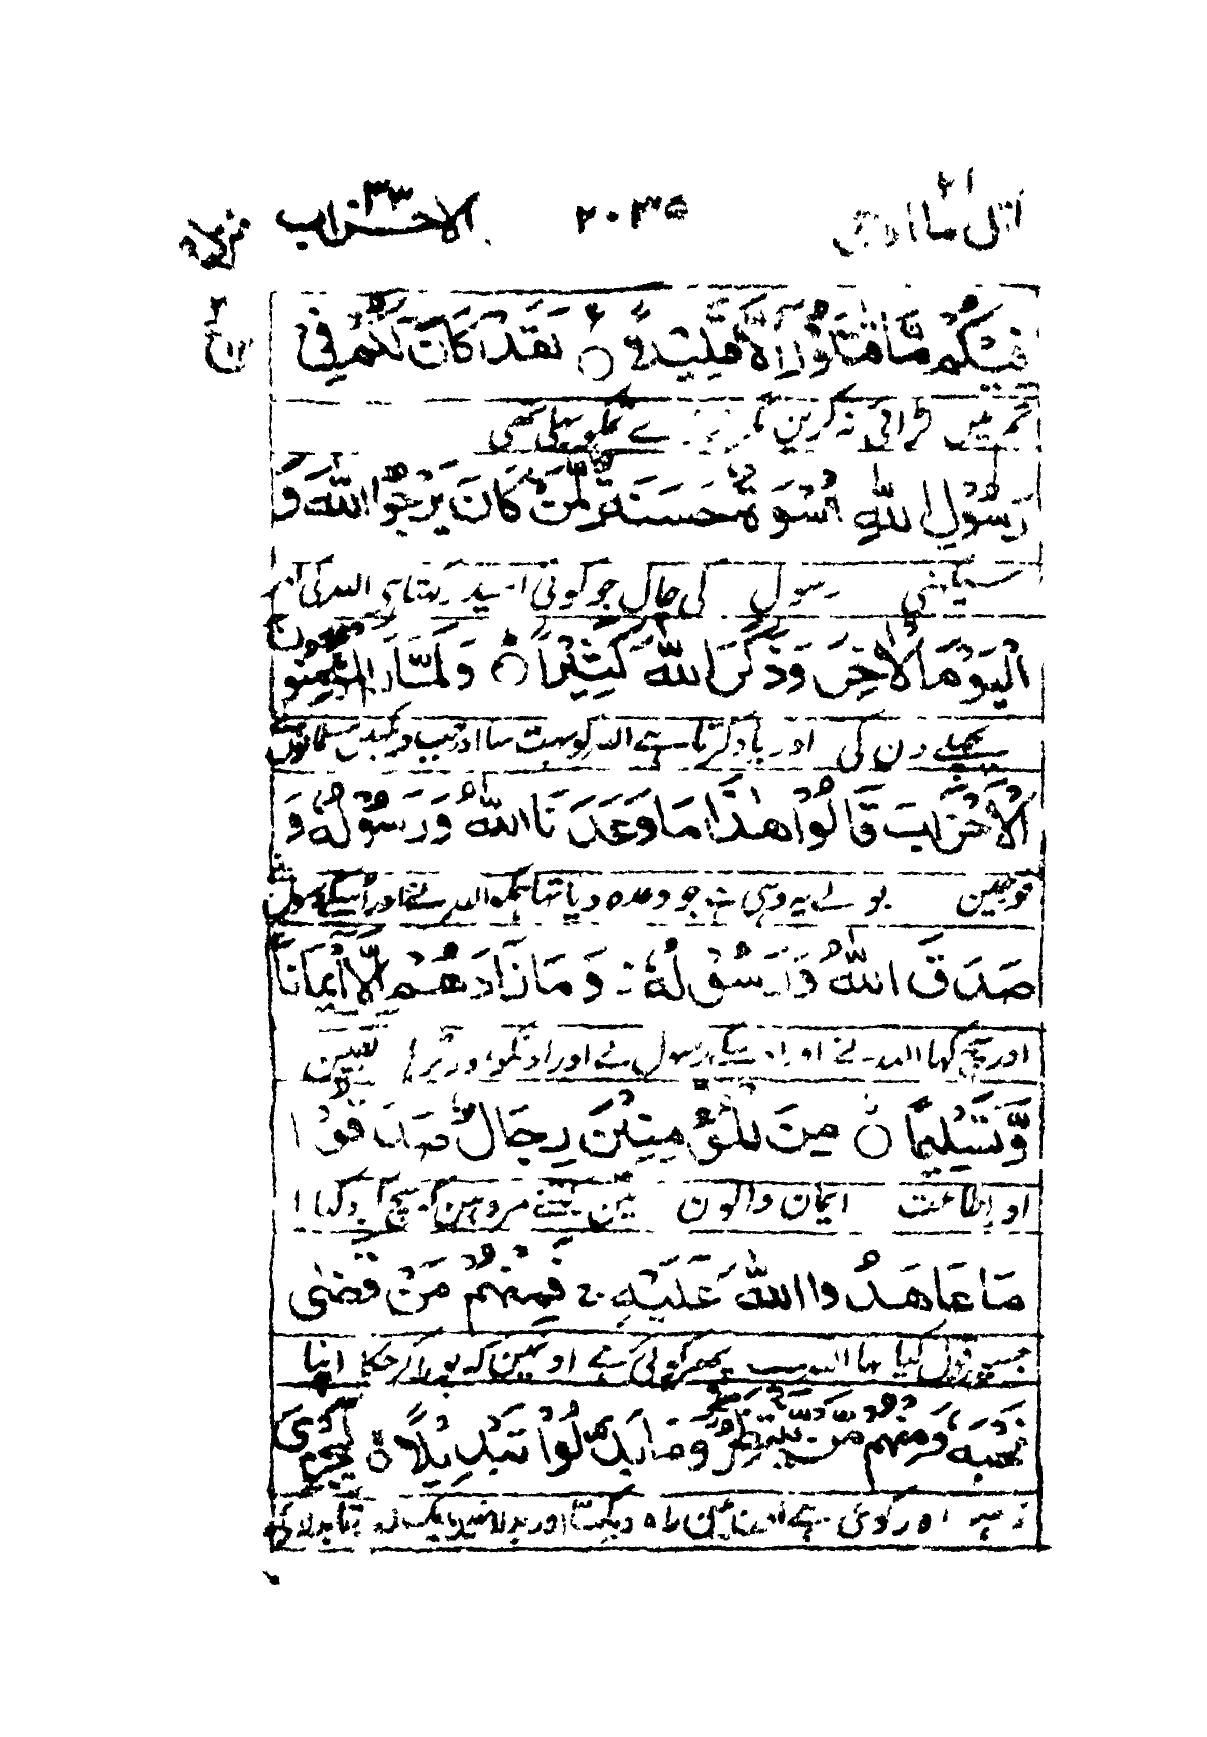 اتل ما اوحی ٢١
٢٠٣٥
الاحزاب ٣٣
فِيْكُمْ مَّا قٰتَلُوْۤا اِلَّا قَلِيْلًا ۠ لَقَدْ كَانَ لَكُمْ فِيْ
تم میں لڑائی نہ کریں مگر تمکو بھلی تھی
رَسُوْلِ اللّٰهِ اُسْوَةٌ حَسَنَةٌ لِّمَنْ كَانَ يَرْجُوا اللّٰهَ وَ
سیکھنی رسول کی چال جو کوئی امید رکھتا ہی اللہ کی اور
الْيَوْمَ الْاٰخِرَ وَذَكَرَ اللّٰهَ كَثِيْرًا ۝ وَلَمَّا رَاَ الْمُؤْمِنُوْنَ
پچھلے دن کی اور یاد کرتا ہے اللہ کو بہت سا اور جب دیکھیں مسلمانوں نے
الْاَحْزَابَ قَالُوْا هٰذَا مَا وَعَدَنَا اللّٰهُ وَرَسُوْلُهٗ وَ
فوجیں بولے یہ وہی ہے جو وعدہ دیا تھا ہمکو اللہ نے اور اسکے رسول نے
صَدَقَ اللّٰهُ وَرَسُوْلُهٗ ز وَمَا زَادَهُمْ اِلَّاۤ اِيْمَانًا
اور سچ کہا اللہ نے اور اسکے رسول نے اور اونکو اور بڑھا یقین
وَّتَسْلِيْمًا ۝ مِنَ الْمُؤْمِنِيْنَ رِجَالٌ صَدَقُوْا
اور اطاعت ایمان والون میں کتنے مرد ہین کہ سچ کر دکھایا
مَا عَاهَدُوا اللّٰهَ عَلَيْهِ ج فَمِنْهُمْ مَّنْ قَضٰى
جسپر قول کیا تھا اللہ سے پھر کوئی ہے اونہین کہ پورا کر چکا اپنا
نَحْبَهٗ وَمِنْهُمْ مَّنْ يَّنْتَظِرُ وَمَا بَدَّلُوْا تَبْدِيْلًا ۝ لِّيَجْزِيَ
ذمہ اور کوئی ہے اون مین راہ دیکھتا اور بدلا نہین ایک ذرہ تا بدلا دے